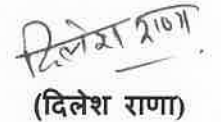 दिलेश राणा
(दिलेश राणा)